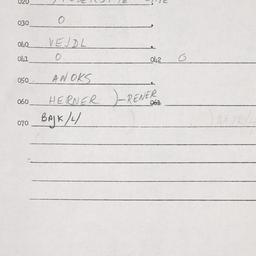 020
030 O
040 VEJDL
041 O 042 O
050 ANOKS
060 HERNER )-RENER 061
070 BAJK/L/